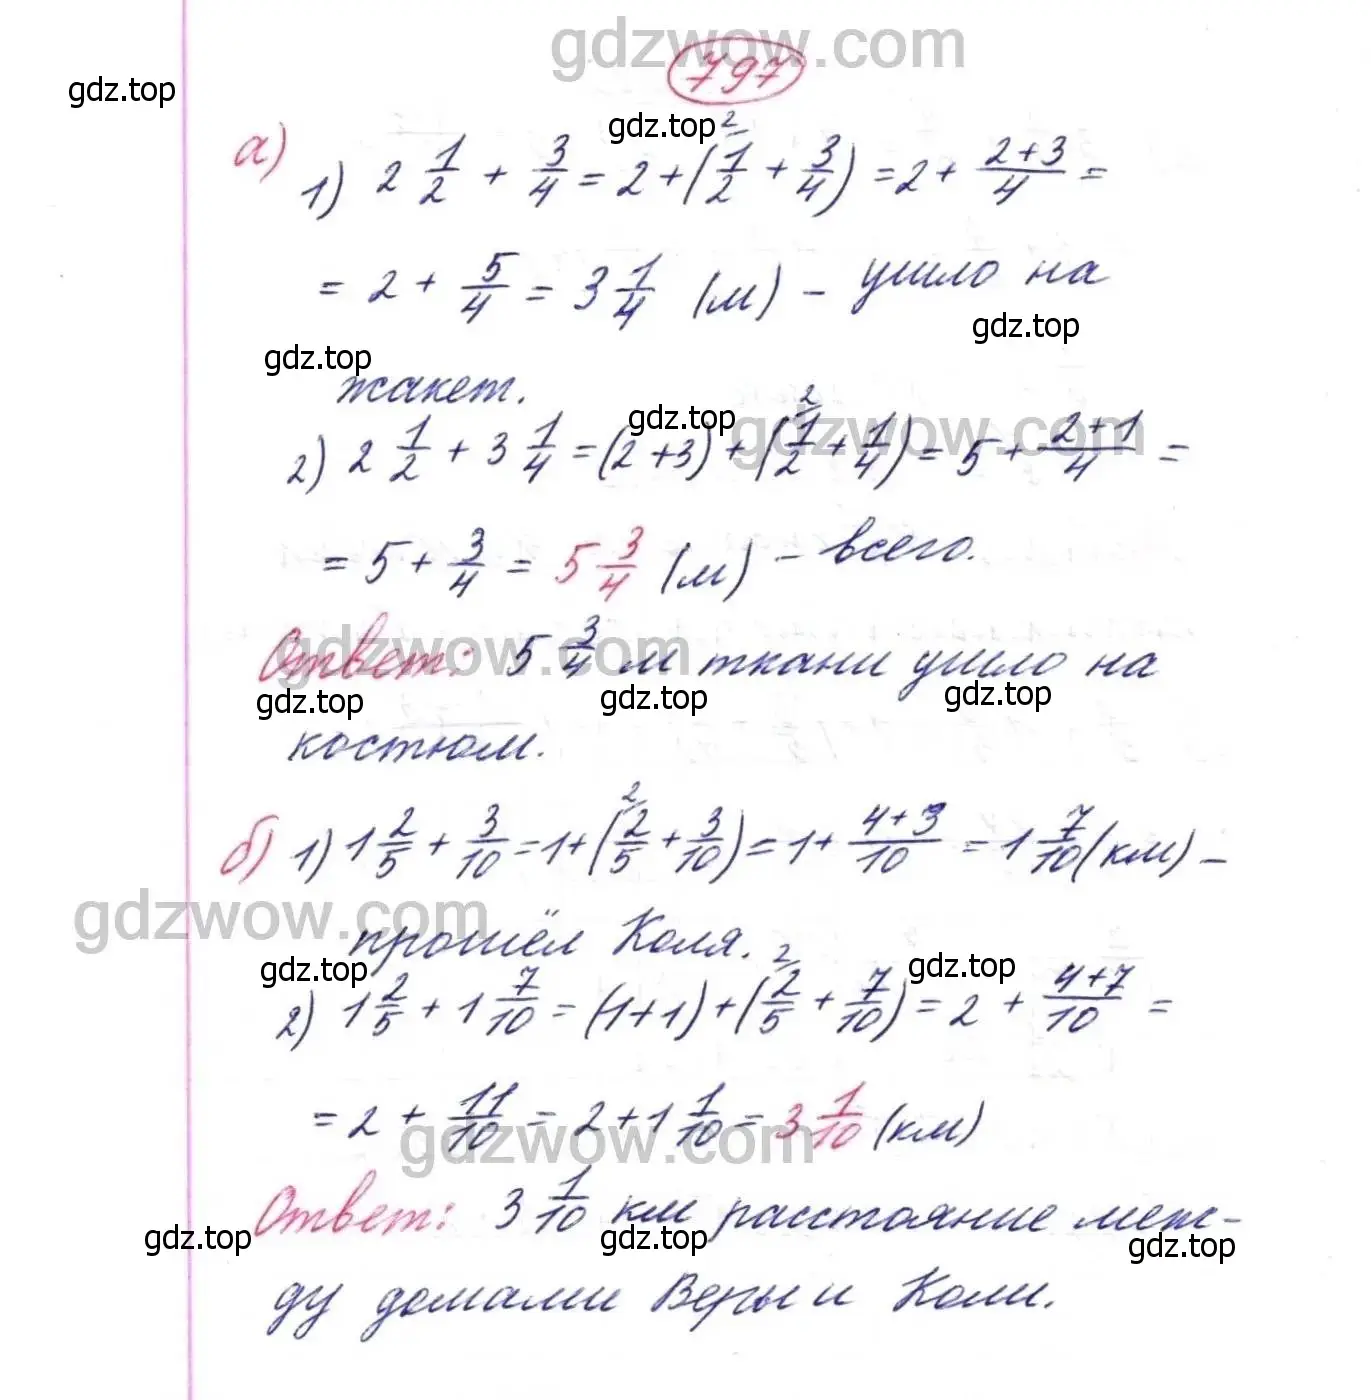 gdzwow.com
797
gdz.top
gdz.top
а) 1) 2 1/2 + 3/4 = 2 + (1/2 ² + 3/4) = 2 + (2+3)/4 =
= 2 + 5/4 = 3 1/4 (м) – ушло на
gdz.top
gdz.top
жакет.
gdz.top
gdzwow.com
2) 2 1/2 + 3 1/4 = (2+3) + (1/2 ² + 1/4) = 5 + (2+1)/4 =
= 5 + 3/4 = 5 3/4 (м) – всего.
gdzwow.com
Ответ: 5 3/4 м ткани ушло на
gdz.top gdz.top gdz.top
костюм.
б) 1) 1 2/5 + 3/10 = 1 + (2/5 ² + 3/10) = 1 + (4+3)/10 = 1 7/10 (км) –
gdzwow.com
прошёл Коля.
gdz.top gdz.top
2) 1 2/5 + 1 7/10 = (1+1) + (2/5 ² + 7/10) = 2 + (4+7)/10 =
= 2 + 11/10 = 2 + 1 1/10 = 3 1/10 (км)
gdzwow.com
Ответ: 3 1/10 км расстояние меж-
gdz.top gdz.top gdz.top
ду домами Веры и Коли.